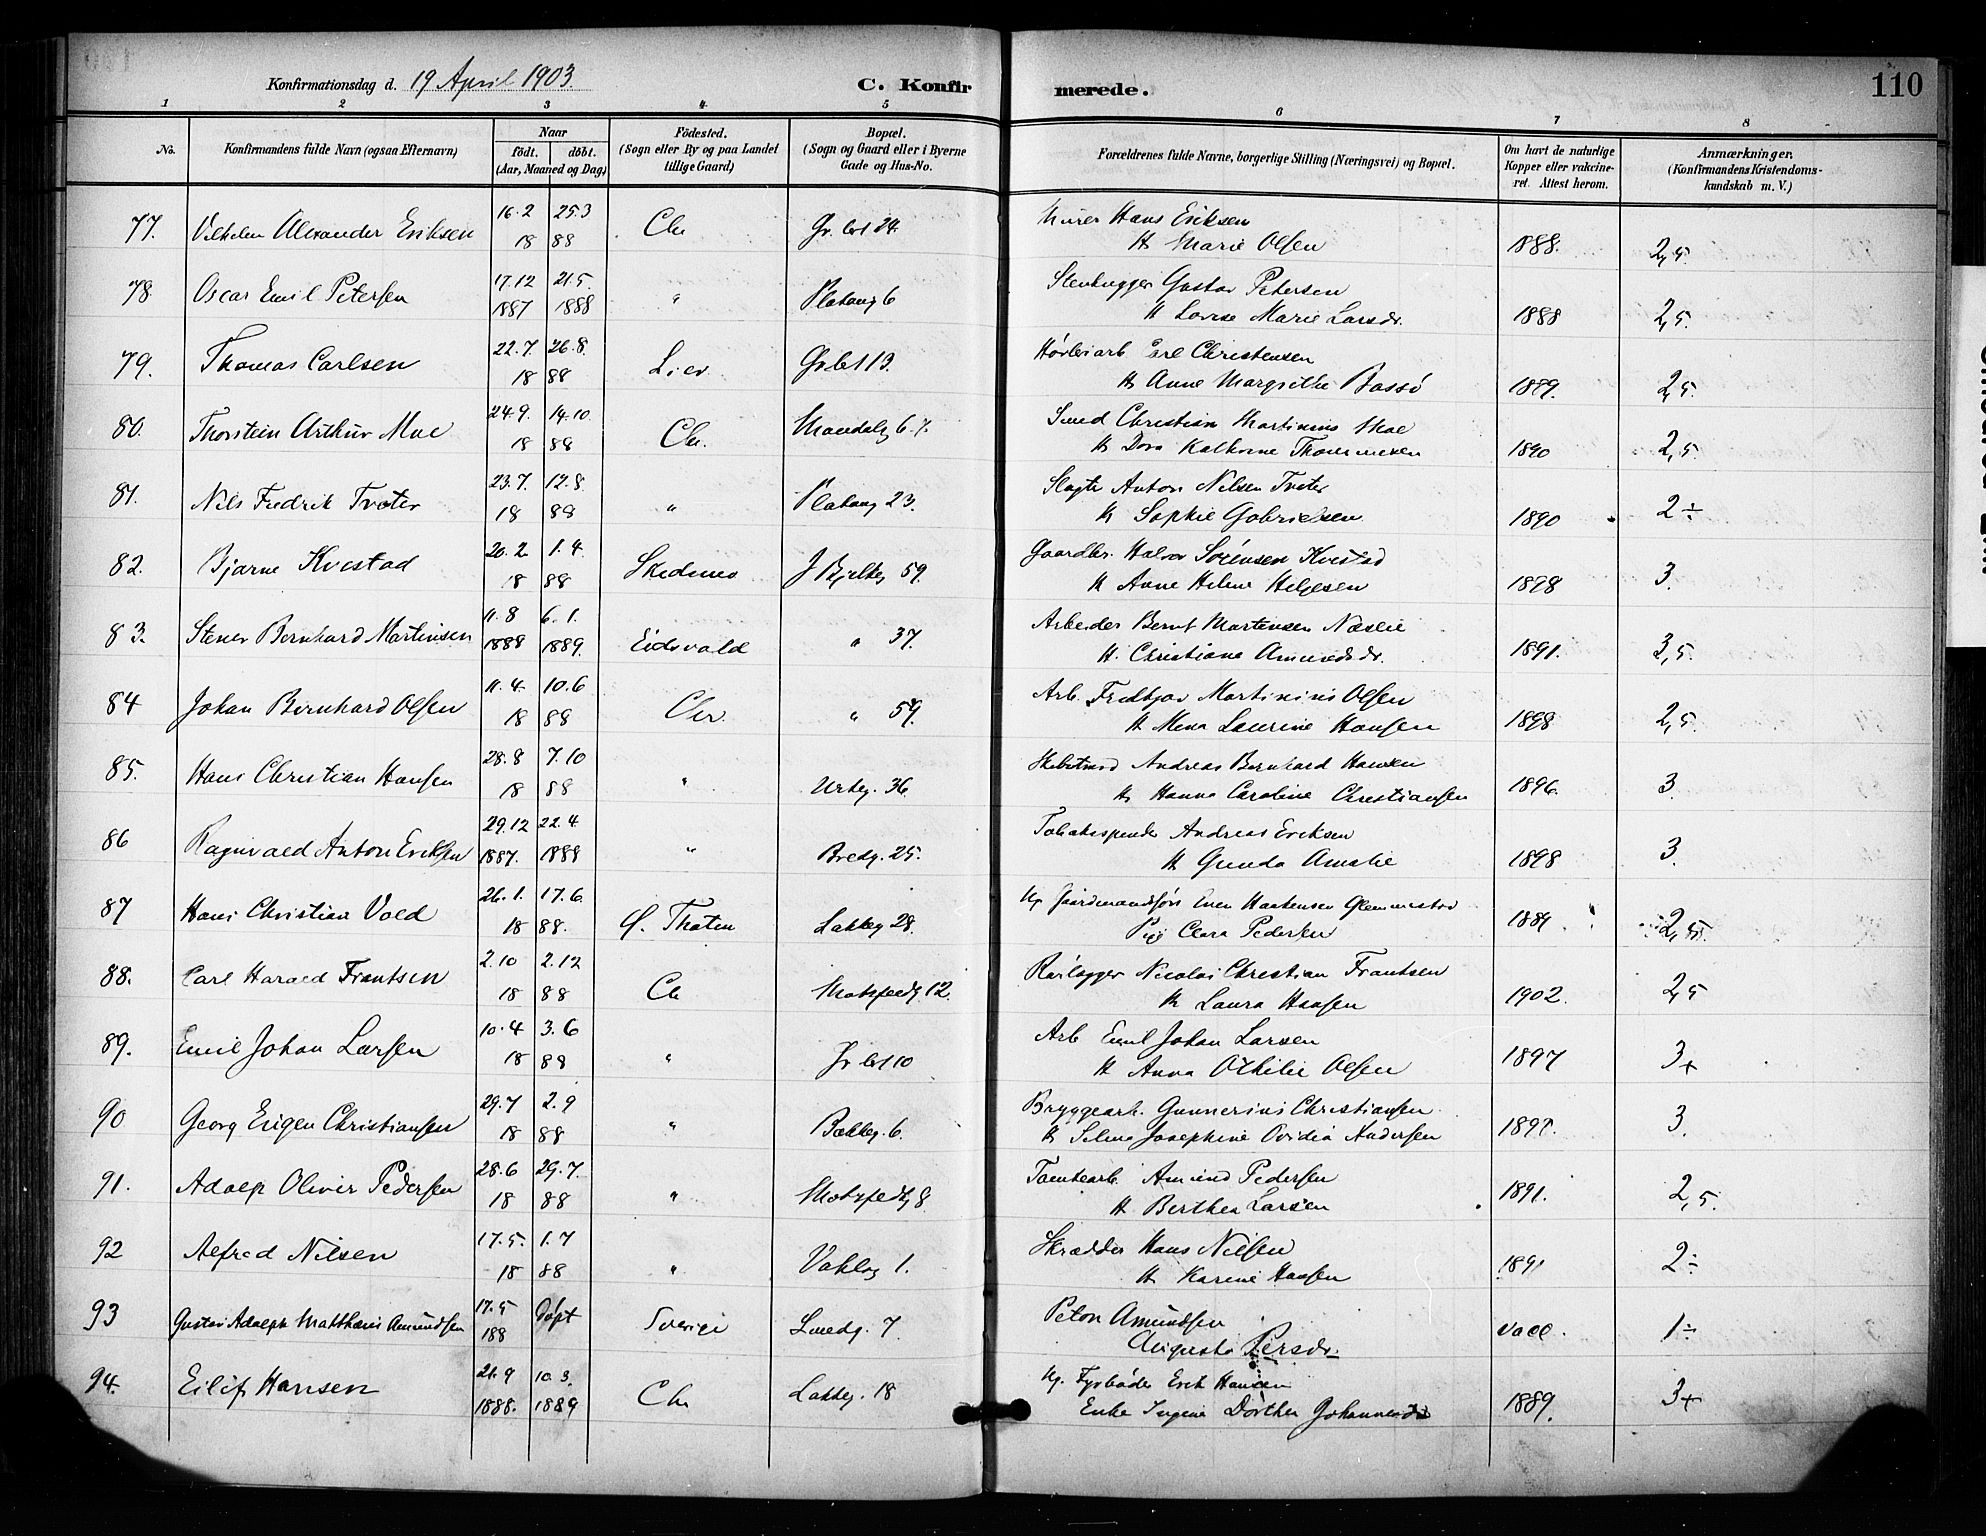 Konfirmationsdag d. 19 April 1903. C. Konfirmerede. 110
1 2 3 4 5 6 7 8
No. Konfirmandens fulde Navn (ogsaa Efternavn) Naar födt. döbt. (Aar, Maaned og Dag) Födested. (Sogn eller By og paa Landet tillige Gaard) Bopæl. (Sogn og Gaard eller i Byerne Gade og Hus-No. Forældrenes fulde Navne, borgerlige Stilling (Næringsvei) og Bopæl. Om havt de naturlige Kopper eller vakcineret. Attest herom. Anmærkninger. (Konfirmandens Kristendomskundskab m. V.)
77. Vilhelm Alexander Eriksen 16.2 25.3 Chr Gr. brt 24. Murer Hans Eriksen
18 88 H. Marie Olsen 1888. 2,5.
78. Oscar Emil Petersen 17.12 21.5. " Platoug 6 Stenhugger Gustav Petersen
1887 1888 H. Lovise Marie Larsdr. 1888 2,5.
79. Thomas Carlsen 22.7. 26.8. Lier Gr brt 19. Høvleriarb Carl Christensen
18 88 H. Anne Margrethe Bassö 1889. 2,5.
80. Thorstein Arthur Moe 24.9. 14.10. Chr. Mandalg 6.7. Smed Christian Martinius Moe
18 88 H. Dora Kathrine 1890 2,5.
81. Nils Fredrik Tveter 23.7. 12.8. " Platoug 23. Slagter Anton Nilsen Tveter
18 88 H. Sophie Gabrielsen 1890 2÷
82. Bjarne Kvestad 20.2. 1.4. Skedsmo J Bjelkeg 59. Gaardbr. Halvor Sörensen Kvestad
18 88 H. Anne Helene Helgesen 1898 3.
83. Stener Bernhard Martinsen 11.8 6.1. Eidsvold " 37. Arbeider Bernt Martensen Næslie
1888 1889. H. Christiane Amundsdr. 1891. 3,5.
84 Johan Bernhard Olsen 11.4. 10.6 Chr. " 59. Arb. Fredthjov Martinius Olsen
18 88 H. Mena Laurine Hansen 1898 2,5.
85. Hans Christian Hansen 28.8 7.10 " Urteg. 36. Andreas Bernhard Hansen
18 88 H. Hanna Caroline Christiansen 1896. 3.
86 Ragnvald Anton Eriksen 29.12 22.4. " Bredg. 25. Tobakspinder Andreas Eriksen
1887. 1888 H. Gunda Amalie 1898 3.
87 Hans Christian Vold 26.1. 17.6. Ø. Thoten Lakkeg 28. Ug. Gaardmandssön Even Haakensen Glemmestad
18 88. Pig Clara Pedersen 1889 2,5.
88. Carl Harald Frantsen 2.10 2.12 Ch Motzfeldtg 12. Rörlægger Nicolai Christian Frantsen
18 88 H. Laura Hansen 1902. 2,5
89. Emil Johan Larsen 10.4 3.6 " Gr brt 10 Arb Emil Johan Larsen
18 88 H. Anna Othilie Olsen 1897 3+
90 Georg Eugen Christiansen 29.7 2.9 " Bakkeg. 6. Bryggearb. Gunnerius Christiansen
18 88 H. Selma Josephine Ovidia Andersen 1897. 3.
91. Adolf Oliver Pedersen 28.6 29.7. " Motzfeldtg 8. Tomtearb. Amund Pedersen
18 88 H. Berthea Larsen 1891. 2,5.
92 Alfred Nilsen 17.5. 1.7 " Vahlsg 1. Skrædder Hans Nilsen
18 88 H. Karine Hansen 1891 2÷
93 Gustav Adolph Matthæus Amundsen 17.5 Döpt Sverige Smedg. 7 Peter Amundsen
188 Augusta Persdr. Vacc. 1÷
94. Eilif Hansen 21.9 10.3. Chr Lakkeg. 18 Ug. Fyrböder Erik Hansen
1888. 1889 Enke Ingine Dorthea 1889. 3+